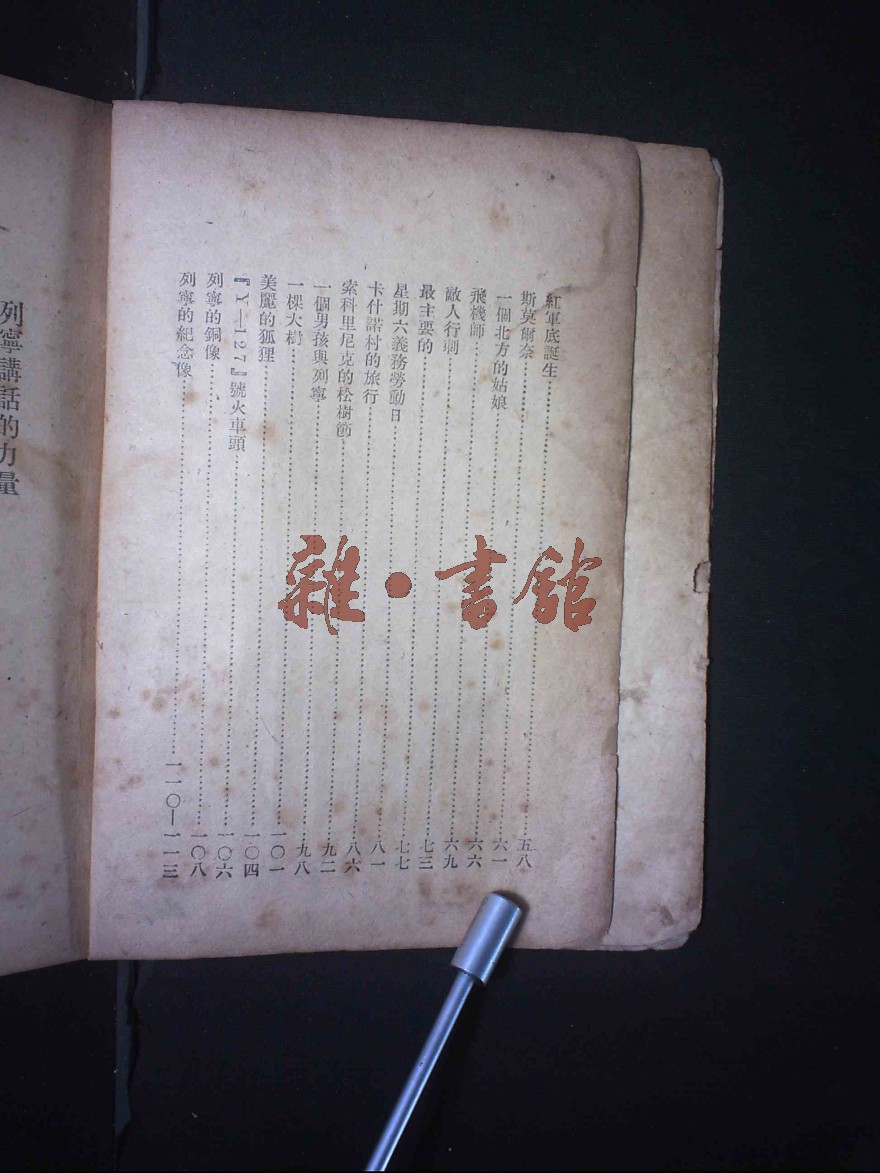 紅軍底誕生……五八
斯莫爾奈……六一
一個北方的姑娘……六六
飛機師……六九
敵人行刺……七三
最主要的……七七
星期六義務勞動日……八一
卡什諾村的旅行……八六
索科里尼克的松樹節……九二
一個男孩與列寧……九八
一棵大樹……一〇一
美麗的狐狸……一〇四
『Y—127』號火車頭……一〇六
列寧的銅像……一〇八
列寧的紀念像……一一〇—一一三
列寧講話的力量
雜·書館